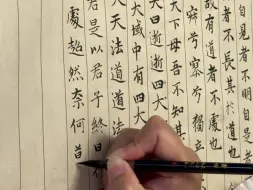 自見者不明自是者
者不長其於道也
故有道者不處也
寂兮寥兮獨立
天下母吾不知其
大曰逝
大域中有四大
天法道道法
君是以君子終日
處超然奈何昔